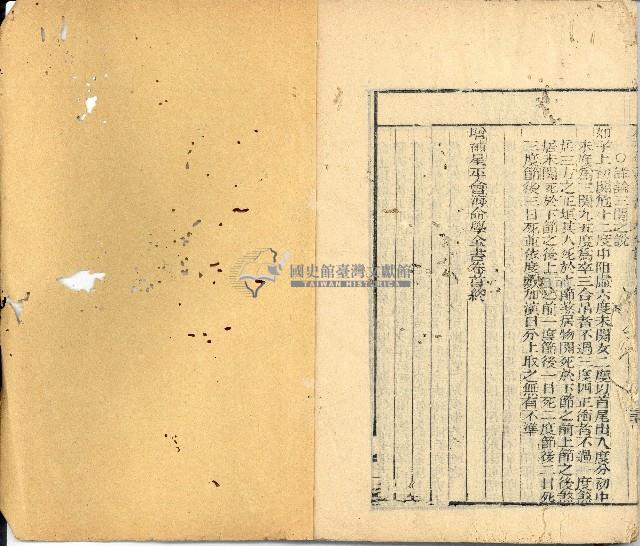 ○詳論三關之說
如子上初關危十二度中阻虛六度末關女二度以首尾出入度分初中
末度為三關九五度為卒三合吊者不過三度四正衝者不過一度煞
居三方之正垣其人死於前節煞居物關死於下節之前上節之後煞
居末關死於下節之後上前一度節後一日死二度節後二日死
三度節後三日死並依度數加演日分上取之無有不準
增補星平會海命學全書卷首終
國史館臺灣文獻館
TAIWAN HISTORICA